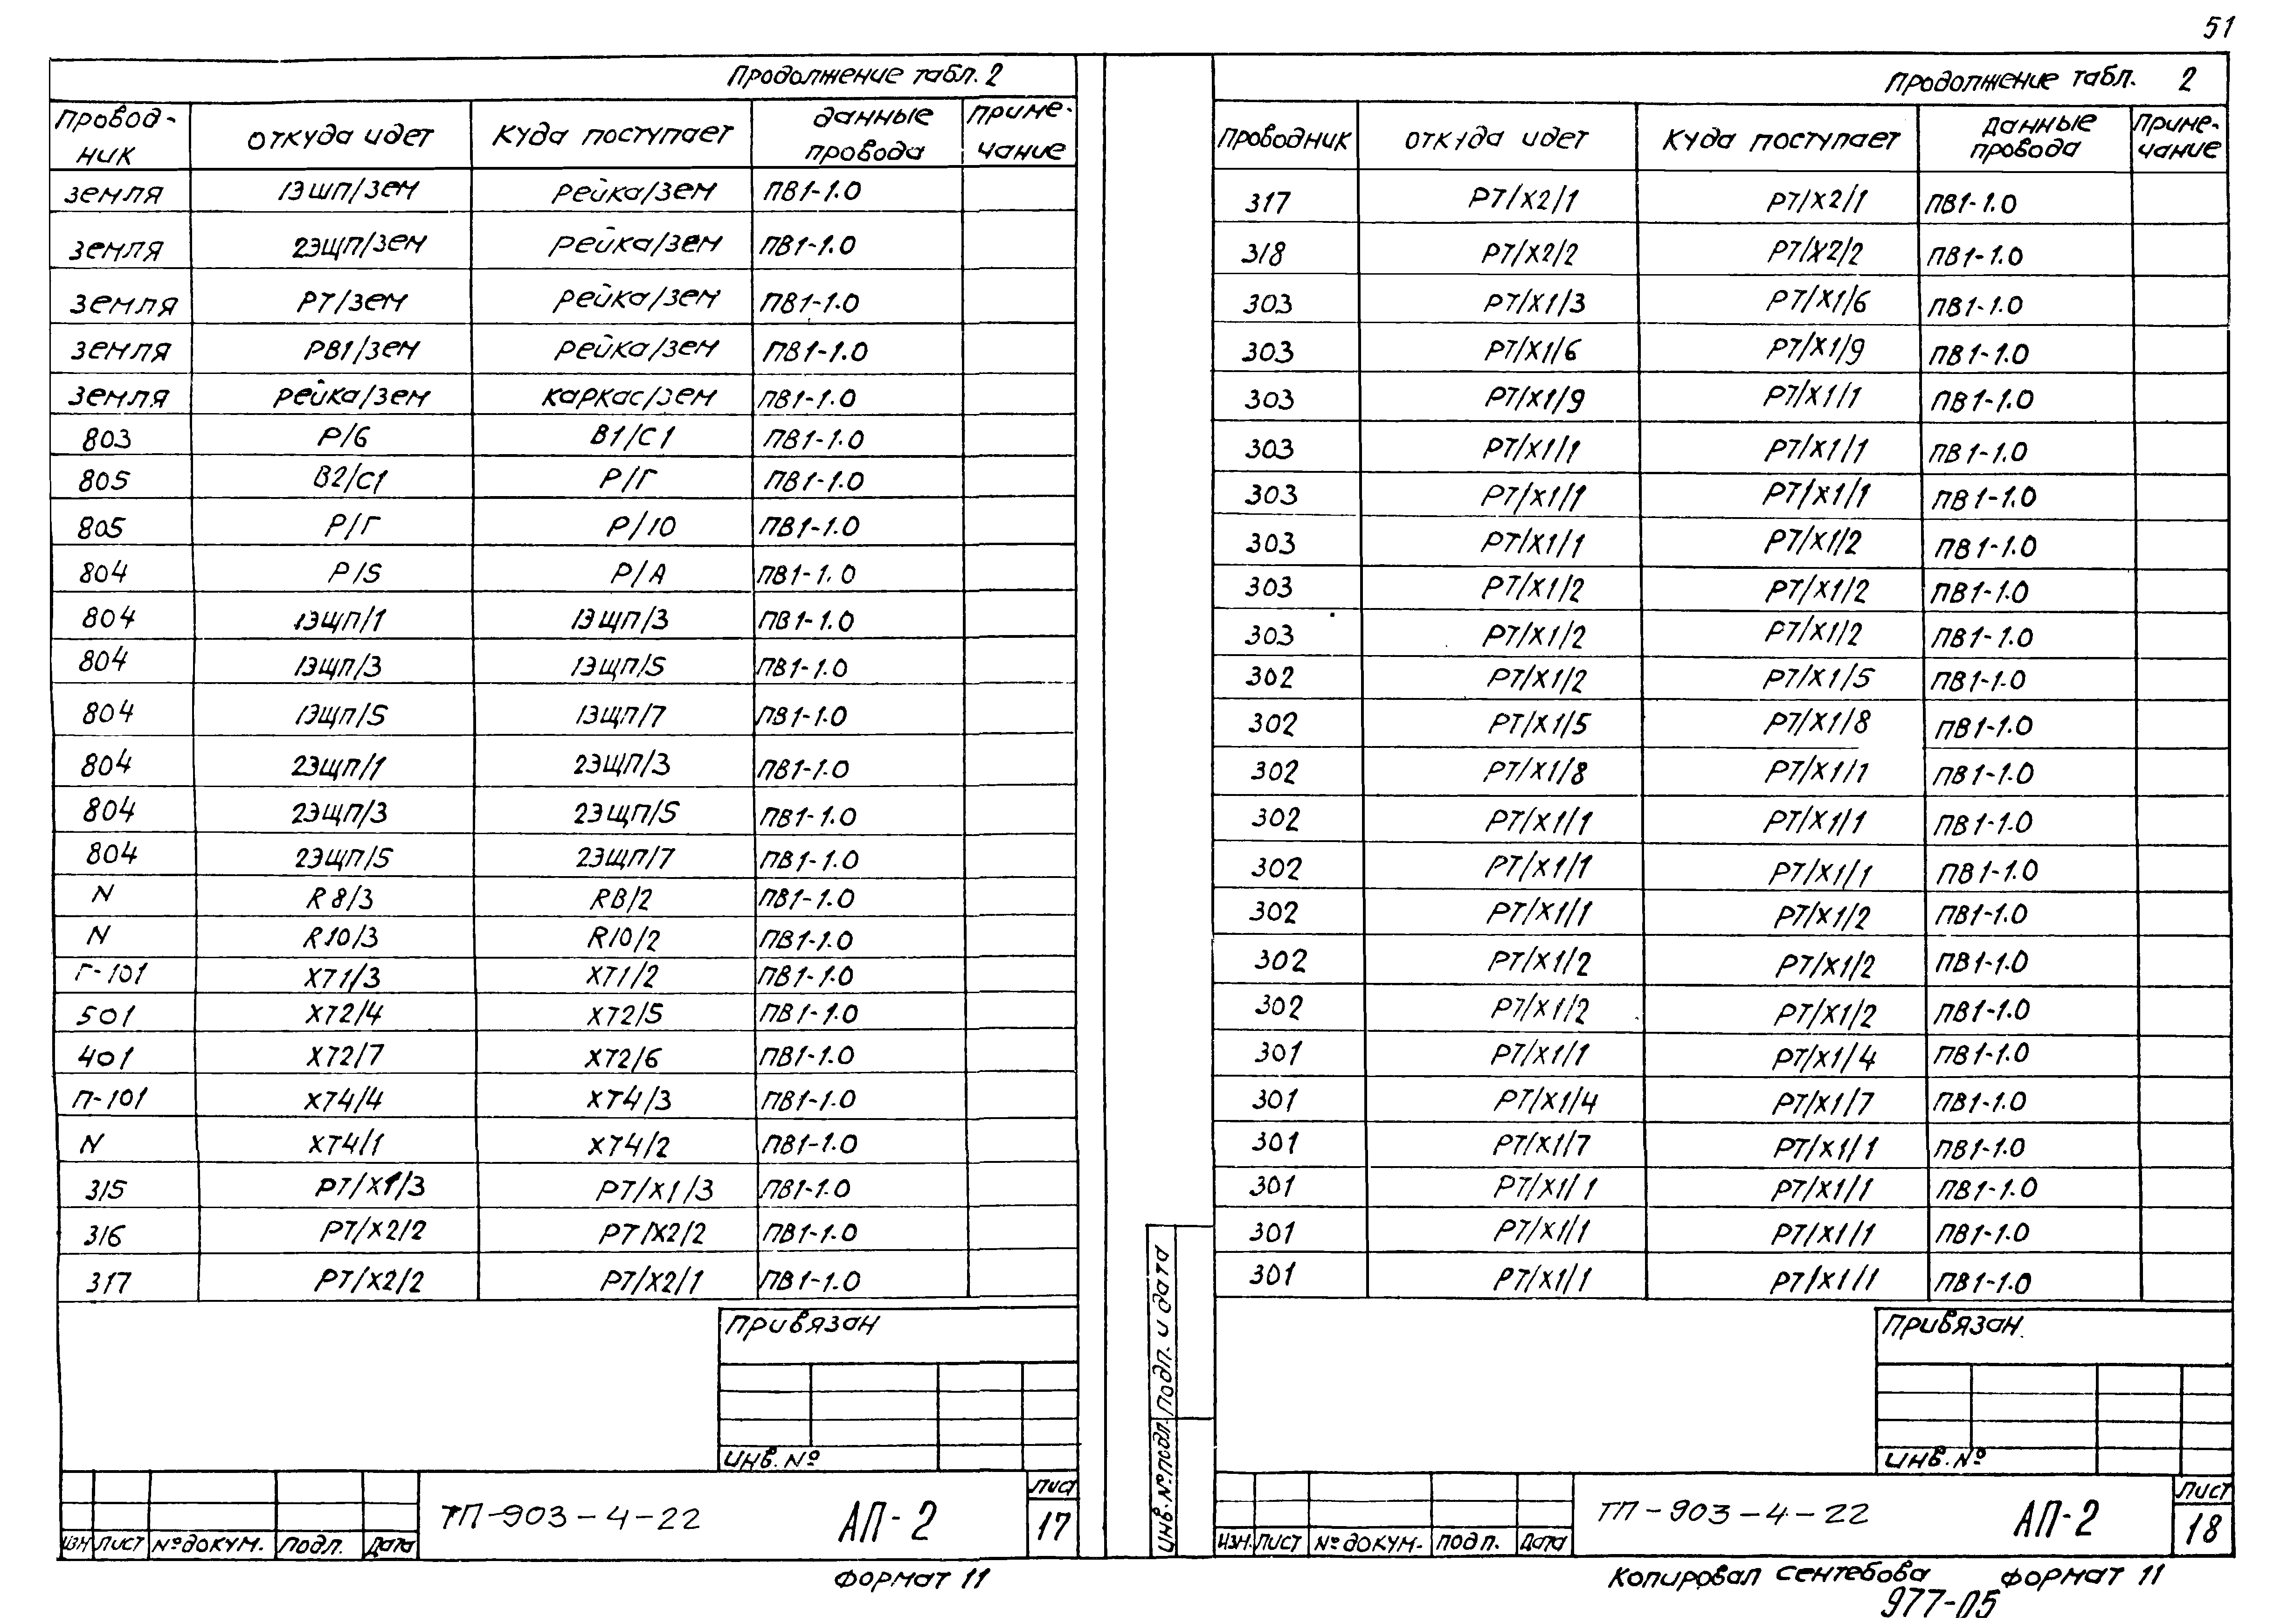 51
Продолжение табл. 2
Провод-ник откуда идет Куда поступает данные провода приме-чание
земля 1ЭШП/зем рейка/зем ПВ1-1.0
земля 2ЭЩП/зем рейка/зем ПВ1-1.0
земля РТ/зем рейка/зем ПВ1-1.0
земля РВ1/зем рейка/зем ПВ1-1.0
земля рейка/зем каркас/зем ПВ1-1.0
803 Р/6 В1/С1 ПВ1-1.0
805 В2/С1 Р/Г ПВ1-1.0
805 Р/Г Р/10 ПВ1-1.0
804 Р/5 Р/А ПВ1-1.0
804 1ЭЩП/1 1ЭЩП/3 ПВ1-1.0
804 1ЭЩП/3 1ЭЩП/5 ПВ1-1.0
804 1ЭЩП/5 1ЭЩП/7 ПВ1-1.0
804 2ЭЩП/1 2ЭЩП/3 ПВ1-1.0
804 2ЭЩП/3 2ЭЩП/5 ПВ1-1.0
804 2ЭЩП/5 2ЭЩП/7 ПВ1-1.0
N R8/3 R8/2 ПВ1-1.0
N R10/3 R10/2 ПВ1-1.0
Г-101 ХТ1/3 ХТ1/2 ПВ1-1.0
501 ХТ2/4 ХТ2/5 ПВ1-1.0
401 ХТ2/7 ХТ2/6 ПВ1-1.0
П-101 ХТ4/4 ХТ4/3 ПВ1-1.0
N ХТ4/1 ХТ4/2 ПВ1-1.0
315 РТ/Х1/3 РТ/Х1/3 ПВ1-1.0
316 РТ/Х2/2 РТ/Х2/2 ПВ1-1.0
317 РТ/Х2/2 РТ/Х2/1 ПВ1-1.0
Привязан
Инв. №
Изм Лист № докум. Подп. Дата
ТП-903-4-22 АП-2
Лист
17
Формат 11
Продолжение табл. 2
Проводник откуда идет Куда поступает данные провода Приме-чание
317 РТ/Х2/1 РТ/Х2/1 ПВ1-1.0
318 РТ/Х2/2 РТ/Х2/2 ПВ1-1.0
303 РТ/Х1/3 РТ/Х1/6 ПВ1-1.0
303 РТ/Х1/6 РТ/Х1/9 ПВ1-1.0
303 РТ/Х1/9 РТ/Х1/1 ПВ1-1.0
303 РТ/Х1/1 РТ/Х1/1 ПВ1-1.0
303 РТ/Х1/1 РТ/Х1/1 ПВ1-1.0
303 РТ/Х1/1 РТ/Х1/2 ПВ1-1.0
303 РТ/Х1/2 РТ/Х1/2 ПВ1-1.0
303 РТ/Х1/2 РТ/Х1/2 ПВ1-1.0
302 РТ/Х1/2 РТ/Х1/5 ПВ1-1.0
302 РТ/Х1/5 РТ/Х1/8 ПВ1-1.0
302 РТ/Х1/8 РТ/Х1/1 ПВ1-1.0
302 РТ/Х1/1 РТ/Х1/1 ПВ1-1.0
302 РТ/Х1/1 РТ/Х1/1 ПВ1-1.0
302 РТ/Х1/1 РТ/Х1/2 ПВ1-1.0
302 РТ/Х1/2 РТ/Х1/2 ПВ1-1.0
302 РТ/Х1/2 РТ/Х1/2 ПВ1-1.0
301 РТ/Х1/1 РТ/Х1/4 ПВ1-1.0
301 РТ/Х1/4 РТ/Х1/7 ПВ1-1.0
301 РТ/Х1/7 РТ/Х1/1 ПВ1-1.0
301 РТ/Х1/1 РТ/Х1/1 ПВ1-1.0
301 РТ/Х1/1 РТ/Х1/1 ПВ1-1.0
301 РТ/Х1/1 РТ/Х1/1 ПВ1-1.0
Инв. № подл. Подп. и дата
Привязан
Инв. №
Изм. Лист № докум. Подп. Дата
ТП-903-4-22 АП-2
Лист
18
Копировал Сентебова Формат 11
977-05